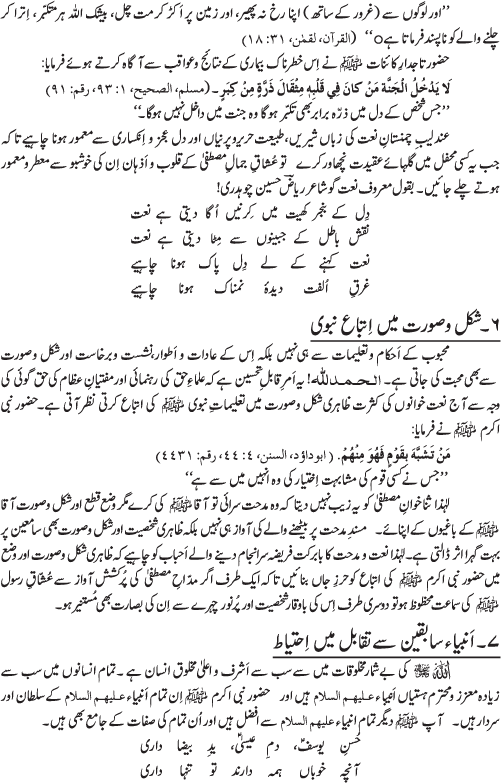 ’’اور لوگوں سے (غرور کے ساتھ) اپنا رخ نہ پھیر، اور زمین پر اکڑ کر مت چل، بیشک اللہ ہر متکبّر، اِترا کر
چلنے والے کو ناپسند فرماتا ہےo‘‘ (القرآن، لقمٰن، ۳۱: ۱۸)
حضور تاجدارِ کائنات ﷺ نے اِس خطرناک بیماری کے نتائج و عواقب سے آگاہ کرتے ہوئے فرمایا:
لَا يَدْخُلُ الْجَنَّةَ مَنْ كَانَ فِي قَلْبِهٖ مِثْقَالُ ذَرَّةٍ مِنْ كِبَرٍ۔ (مسلم، الصحیح، ۱: ۹۳، رقم: ۹۱)
’’جس شخص کے دل میں ذرّہ برابر بھی تکبّر ہوگا وہ جنت میں داخل نہیں ہوگا۔‘‘
عندلیبِ چمنستانِ نعت کی زباں شیریں، طبیعت حریر و پرنیاں اور دل عجز و اِنکساری سے معمور ہونا چاہیے تاکہ
جب یہ کسی محفل میں گلہائے عقیدت نچھاور کرے تو عشاقِ جمالِ مصطفیٰ کے قلوب و اَذہان اِن کی خوشبو سے معطر و معمور
ہوتے چلے جائیں۔ بقول معروف نعت گو شاعر ریاضؔ حسین چوہدری!
دِل کے بنجر کھیت میں کرنیں اُگا دیتی ہے نعت
نقش باطل کے جبینوں سے مِٹا دیتی ہے نعت
نعت کہنے کے لے دِل پاک ہونا چاہیے
غرقِ اُلفت دیدۂ نمناک ہونا چاہیے
۶۔ شکل و صورت میں اِتباعِ نبوی
محبوب کے اَحکام و تعلیمات سے ہی نہیں بلکہ اِس کے عادات و اَطوار، نشست و برخاست اور شکل و صورت
سے بھی محبت کی جاتی ہے۔ الحمدللہ! یہ اَمر قابلِ تحسین ہے کہ علماءِ حق کی رہنمائی اور مفتیانِ عظام کی حق گوئی کی
وجہ سے آج نعت خوانوں کی کثرت ظاہری شکل و صورت میں تعلیماتِ نبوی ﷺ کی اِتباع کرتی نظر آتی ہے۔ حضور نبی
اکرم ﷺ نے فرمایا:
مَنْ تَشَبَّهَ بِقَوْمٍ فَهُوَ مِنْهُمْ۔ (ابوداؤد، السنن، ۴: ۴۴، رقم: ۴۴۳۱)
’’جس نے کسی قوم کی مشابہت اِختیار کی وہ انہیں میں سے ہے‘‘
لہٰذا ثنا خوانِ مصطفیٰ کو یہ زیب نہیں دیتا کہ وہ مدحت سرائی تو آقا ﷺ کی کرے مگر وضع قطع اور شکل و صورت آقا
ﷺ کے باغیوں کے اپنائے۔ مسندِ مدحت پر بیٹھنے والے کی آواز ہی نہیں بلکہ ظاہری شخصیت اور شکل و صورت بھی سامعین پر
بہت گہرا اثر ڈالتی ہے۔ لہٰذا نعت و مدحت کا بابرکت فریضہ سرانجام دینے والے اَحباب کو چاہیے کہ ظاہری شکل و صورت اور وضع
میں حضور نبی اکرم ﷺ کی اتباع کو حرزِ جاں بنائیں تاکہ ایک طرف اگر مدّاحِ مصطفیٰ کی پُرکشش آواز سے عشاقِ رسول
ﷺ کی سماعت محظوظ ہو تو دوسری طرف اِس کی باوقار شخصیت اور پُرنور چہرے سے اِن کی بصارت بھی مُستنیر ہو۔
۷۔ اَنبیاءِ سابقین سے تقابل میں اِحتیاط
اللہ ﷻ کی بے شمار مخلوقات میں سے سب سے اَشرف و اعلیٰ مخلوق انسان ہے۔ تمام انسانوں میں سب سے
زیادہ معزز و محترم ہستیاں اَنبیاء علیہم السلام ہیں اور حضور نبی اکرم ﷺ اِن تمام اَنبیاء علیہم السلام کے سلطان اور
سردار ہیں۔ آپ ﷺ دیگر تمام انبیاء علیہم السلام سے اَفضل ہیں اور اُن تمام کی صفات کے جامع بھی ہیں۔
حسنِ یوسفؑ، دمِ عیسیٰؑ، یدِ بیضا داری
آنچہ خوباں ہمہ دارند تو تنہا داری